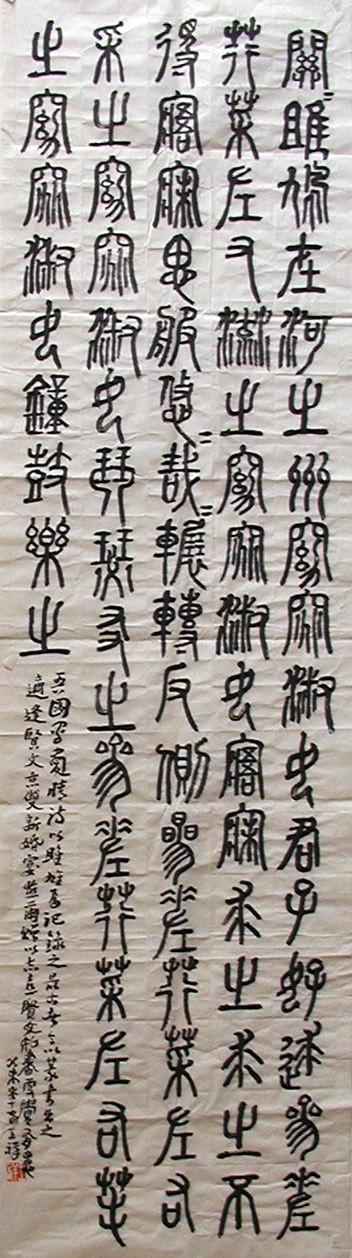 關=雎鳩在河之州窈窕淑女君子好逑參差
荇菜左右流之窈窕淑女寤寐求之求之不
得寤寐思服悠=哉=輾轉反側參差荇菜左右
采之窈窕淑女琴瑟友之參差荇菜左右芼
之窈窕淑女鐘鼓樂之
吾國愛情詩以雎記錄之最古者以篆書書之
適逢賢文雙新婚宴